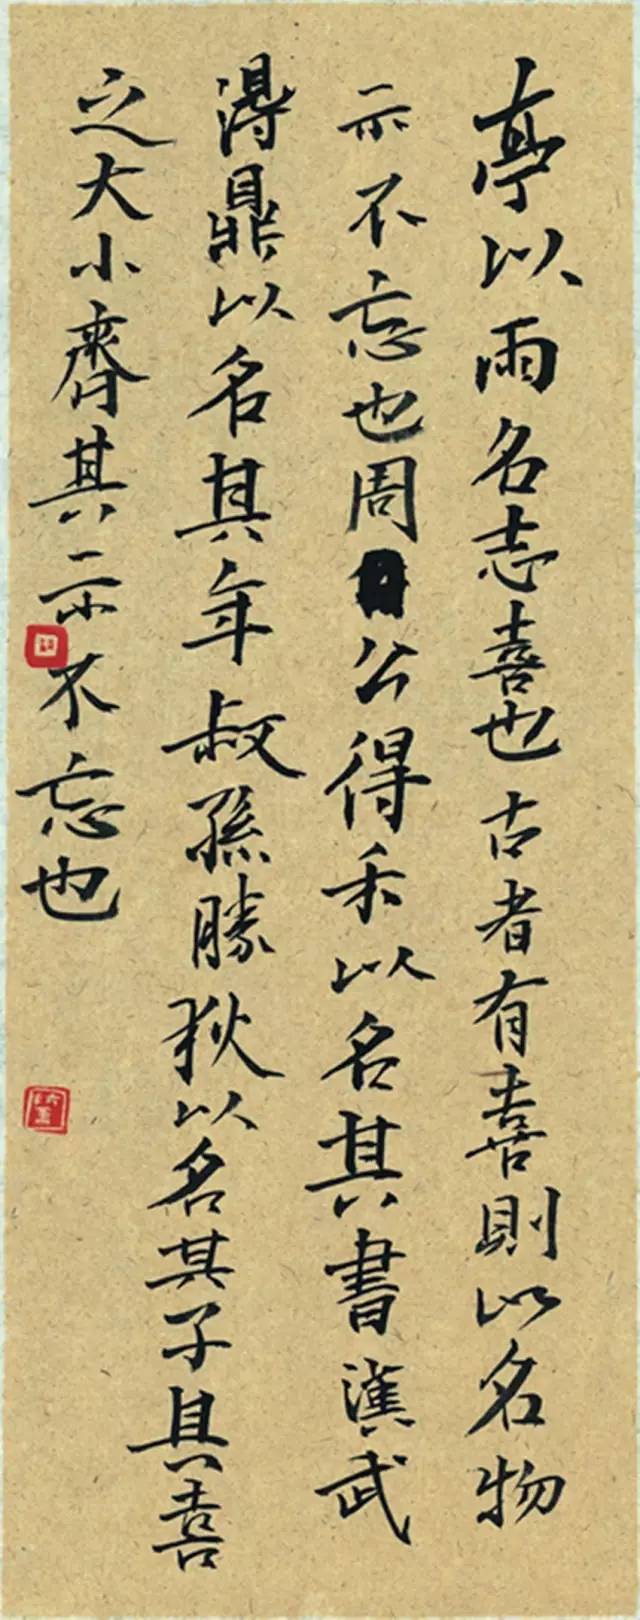 亭以雨名志喜也古者有喜則以名物
示不忘也周公得禾以名其書漢武
得鼎以名其年叔孫勝狄以名其子其喜
之大小齊其示不忘也